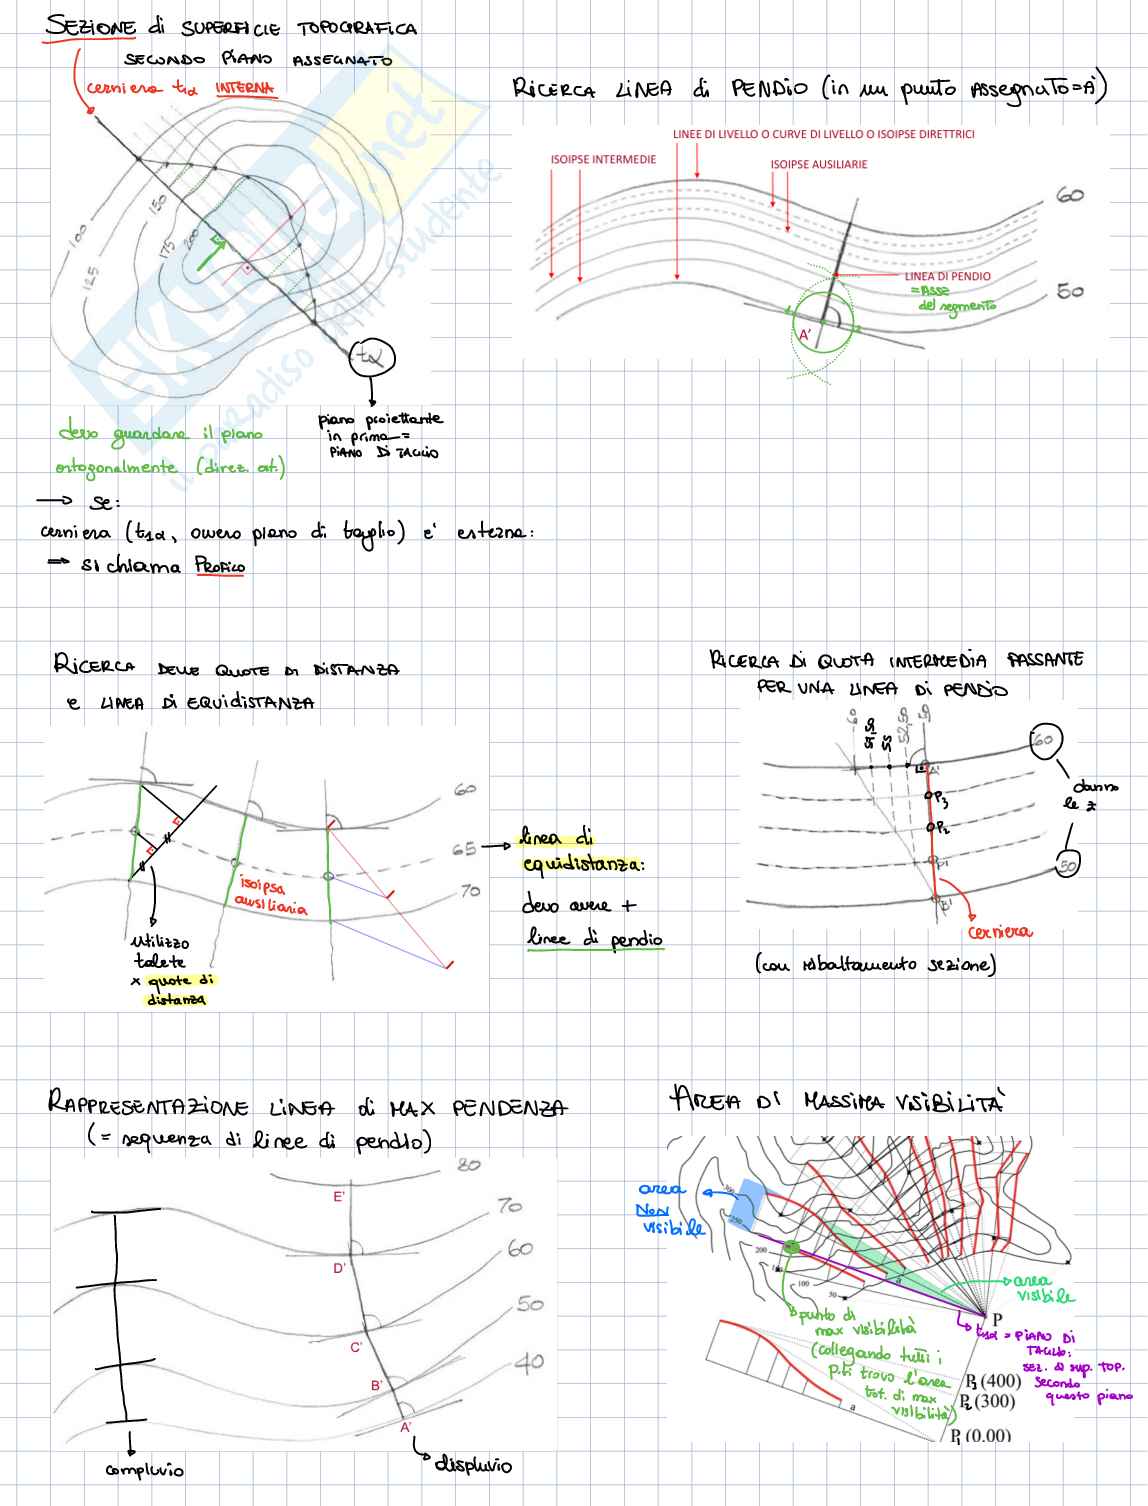 SEZIONE di SUPERFICIE TOPOGRAFICA
SECONDO PIANO ASSEGNATO
cerniera t1α INTERNA
100
125
150
175
200
tα
piano proiettante
in prima =
PIANO DI TAGLIO
devo guardare il piano
ortogonalmente (direz. at.)
→ se:
cerniera (t1α, ovvero piano di taglio) e' esterna:
⇒ si chiama PROFILO
SKUOLA.net
il paradiso dello studente
RICERCA LINEA di PENDIO (in un punto ASSEGNATO=A')
LINEE DI LIVELLO O CURVE DI LIVELLO O ISOIPSE DIRETTRICI
ISOIPSE INTERMEDIE
ISOIPSE AUSILIARIE
60
LINEA DI PENDIO
=ASSE
del segmento
50
1
2
A'
RICERCA DELLE QUOTE DI DISTANZA
e LINEA DI EQUIDISTANZA
60
65
70
isoipsa
ausiliaria
linea di
equidistanza:
devo avere +
linee di pendio
utilizzo
talete
x quote di
distanza
RICERCA DI QUOTA INTERMEDIA PASSANTE
PER UNA LINEA DI PENDIO
60
55
52,50
50
A'
P3
P2
P1
B'
60
danno
le z
50
cerniera
(con ribaltamento sezione)
RAPPRESENTAZIONE LINEA di MAX PENDENZA
(= sequenza di linee di pendio)
80
70
60
50
40
E'
D'
C'
B'
A'
compluvio
displuvio
AREA DI MASSIMA VISIBILITÀ
area
NON
visibile
300
250
200
100
50
a
area
visibile
P
punto di
max visibilità
(collegando tutti i
p.ti trovo l'area
tot. di max
visibilità)
t1α = PIANO DI
TAGLIO:
sez. di sup. TOP.
secondo
questo piano
P3 (400)
P2 (300)
P1 (0.00)
a